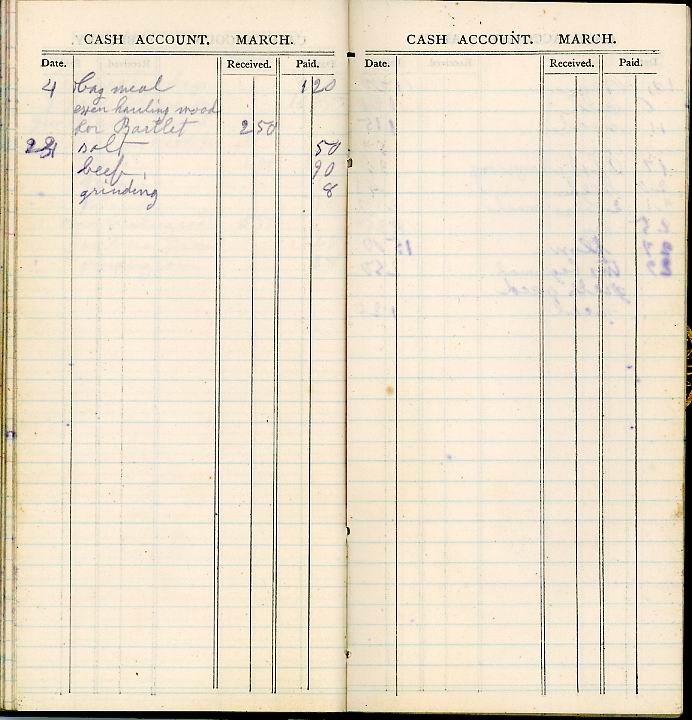 CASH ACCOUNT. MARCH.
Date. Received. Paid.
4 bag meal 1 20
oxen hauling wood
for Bartlet 2 50
24 salt 50
beef, 90
grinding 8
CASH ACCOUNT. MARCH.
Date. Received. Paid.